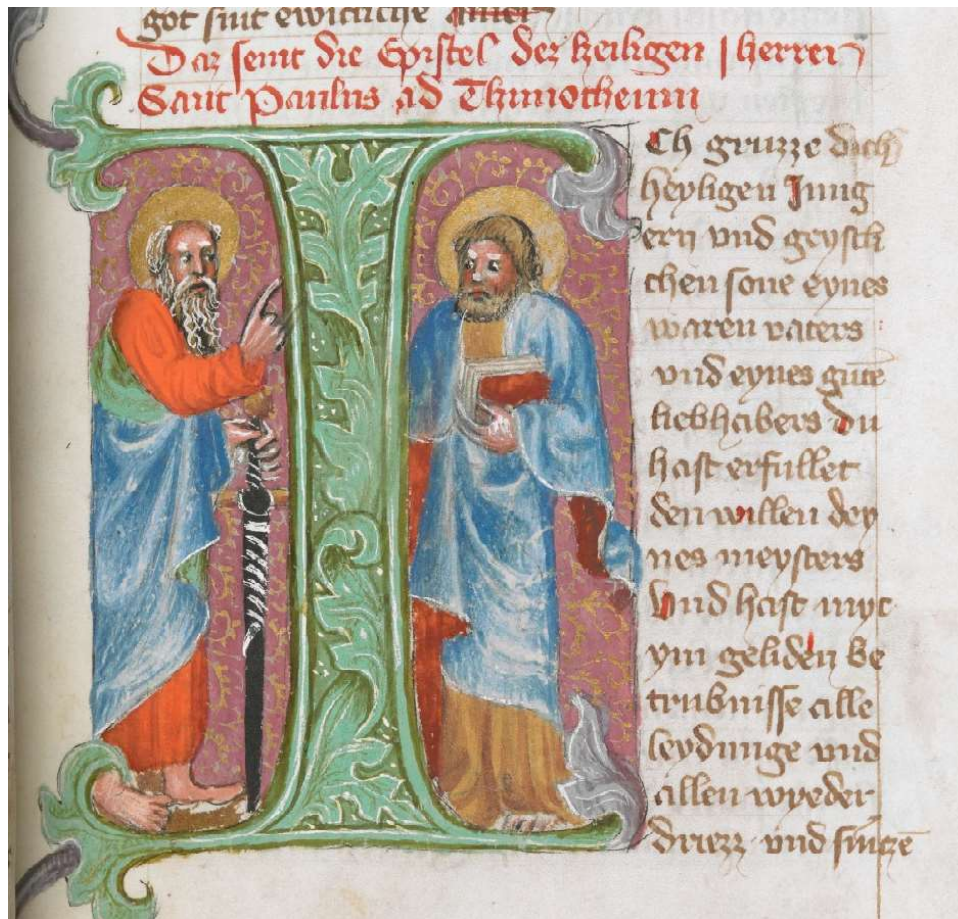 got sint ewicliche Amen
Daz seint die Epistel der heiligen herren
Sant Paulus ad Thimotheum
Ich gruzze dich
heyligen Jung
ern vnd geystli
chen sone eynes
waren vaters
vnd eynes gute
liebhabers du
hast erfullet
den willen dey
nes meysters
vnd hast myt
ym geliden be
trubnisse alle
leydunge vnd
allen wyeder
driezz vnd smeze